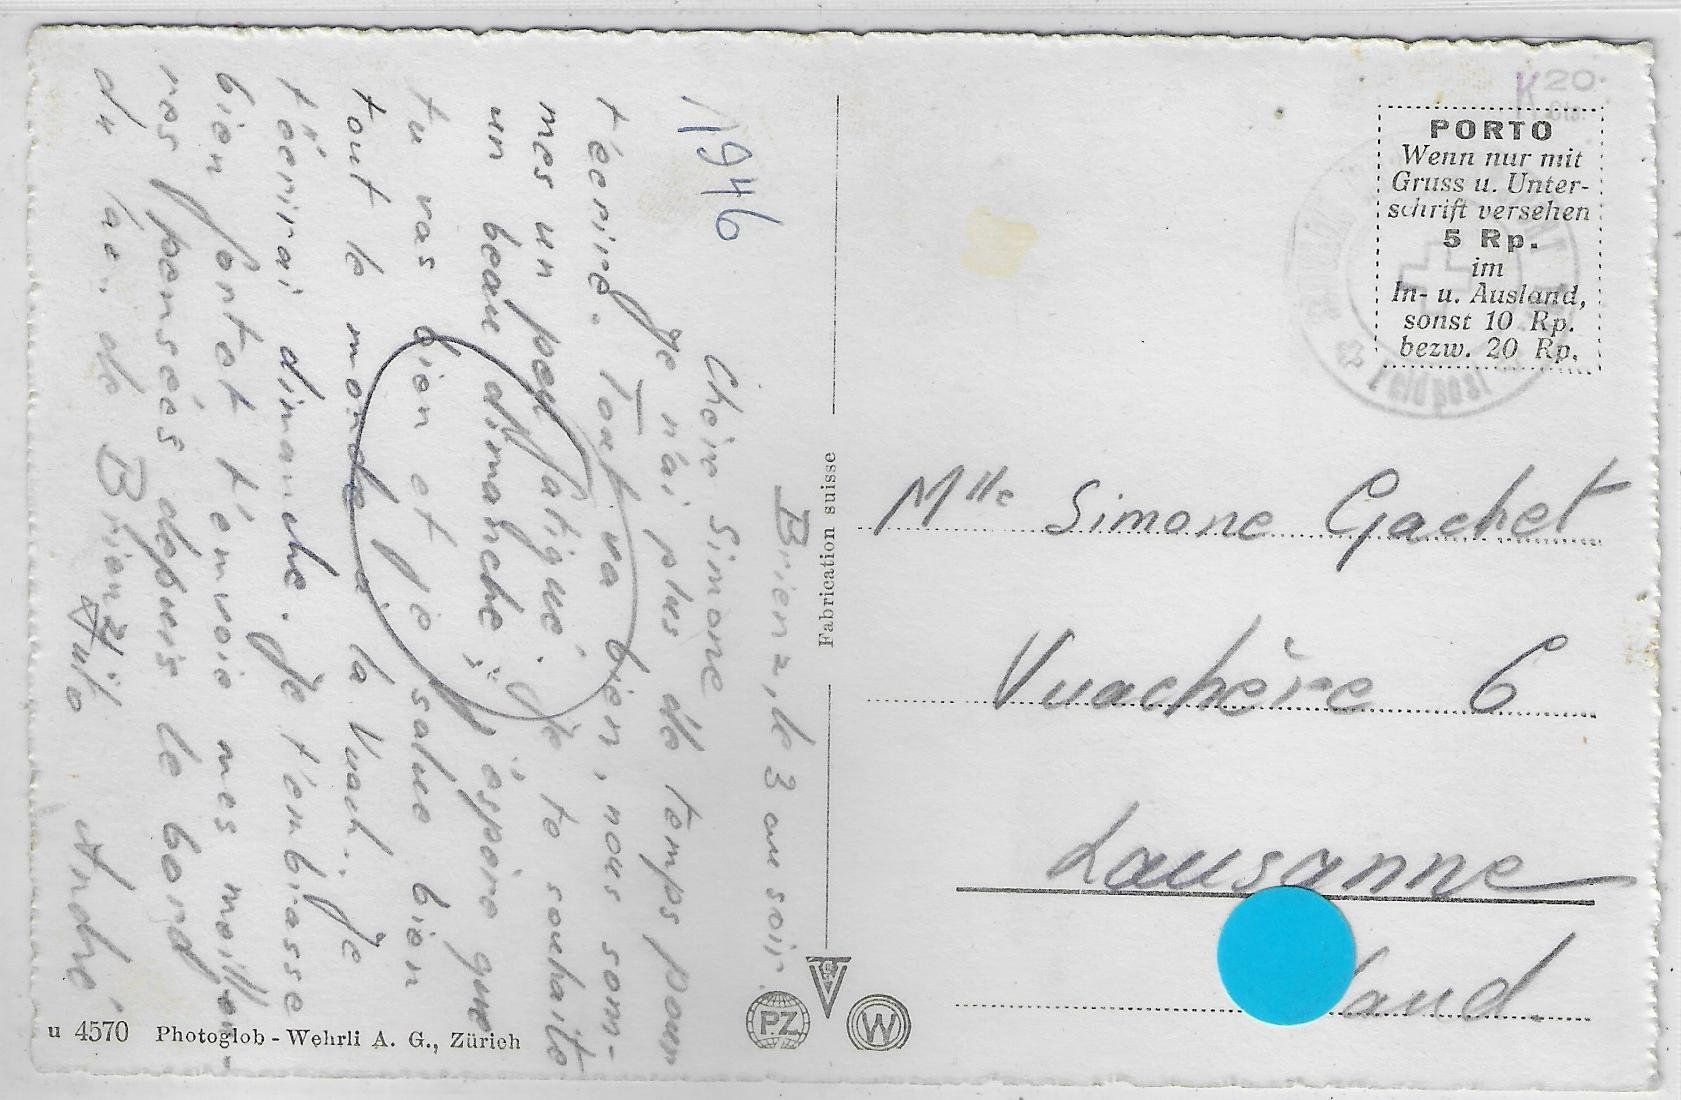 1946
Brienz, le 3 au soir.
Chère Simone
Je n'ai plus de temps pour
t'écrire. Tout va bien, nous som-
mes un peu fatigué. Je te souhaite
un beau dimanche; j'éspère que
tu vas bien et je salue bien
tout le monde à la Vuach. Je
t'écrirai dimanche. Je t'embrasse
bien fort et t'envoie mes meilleu-
res pensées depuis le bord
du lac de Brienz.
André
u 4570 Photoglob - Wehrli A. G., Zürich
Fabrication suisse
PZ
W
K 20
Cts.
PORTO
Wenn nur mit
Gruss u. Unter-
schrift versehen
5 Rp.
im
In- u. Ausland,
sonst 10 Rp.
bezw. 20 Rp.
Feldpost
Mlle Simone Gachet
Vuachère 6
Lausanne
aud.